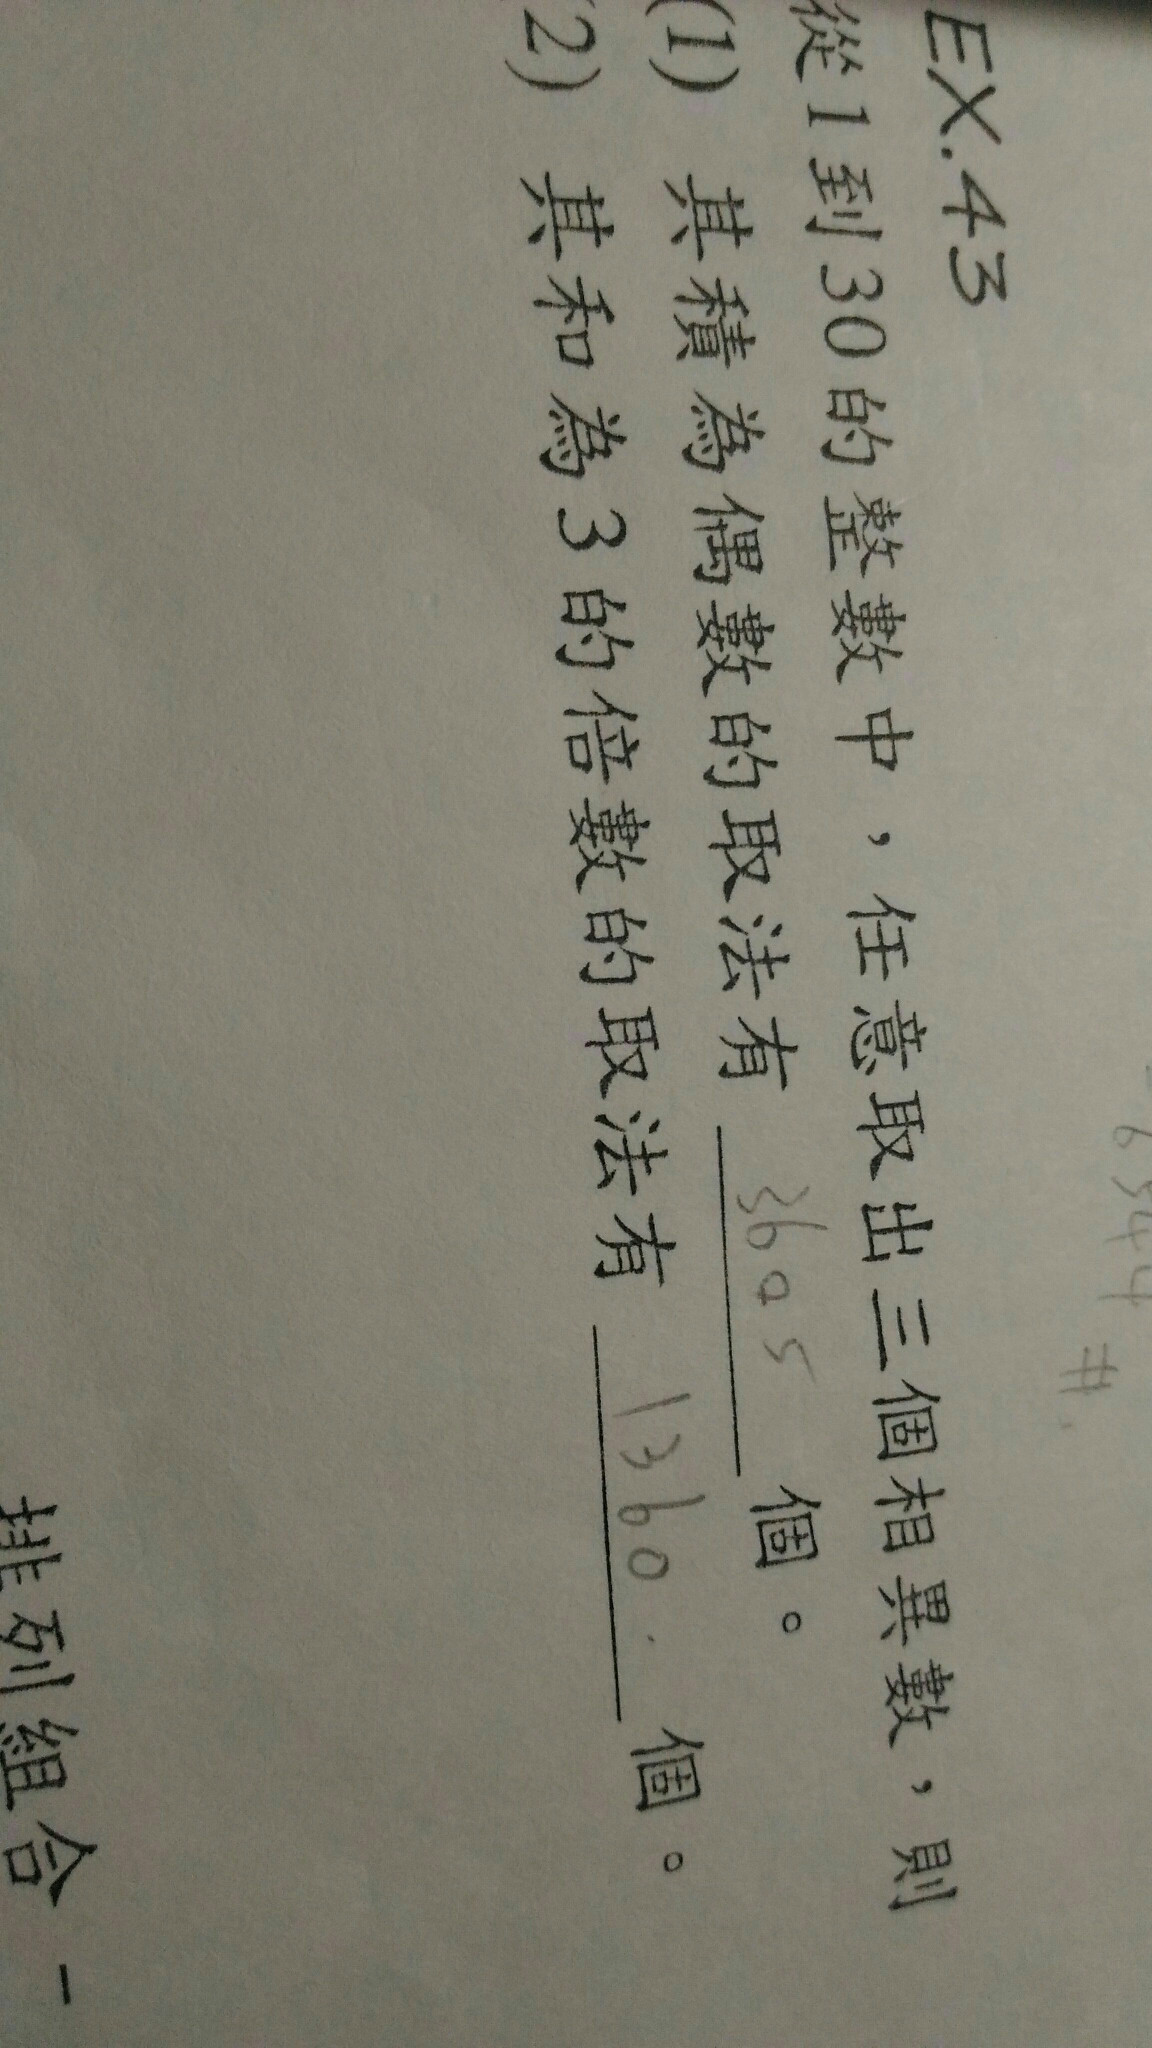 6544 #.
EX.43
從1到30的整數中，任意取出三個相異數，則
(1) 其積為偶數的取法有 3605 個。
(2) 其和為3的倍數的取法有 1360. 個。
排列組合－